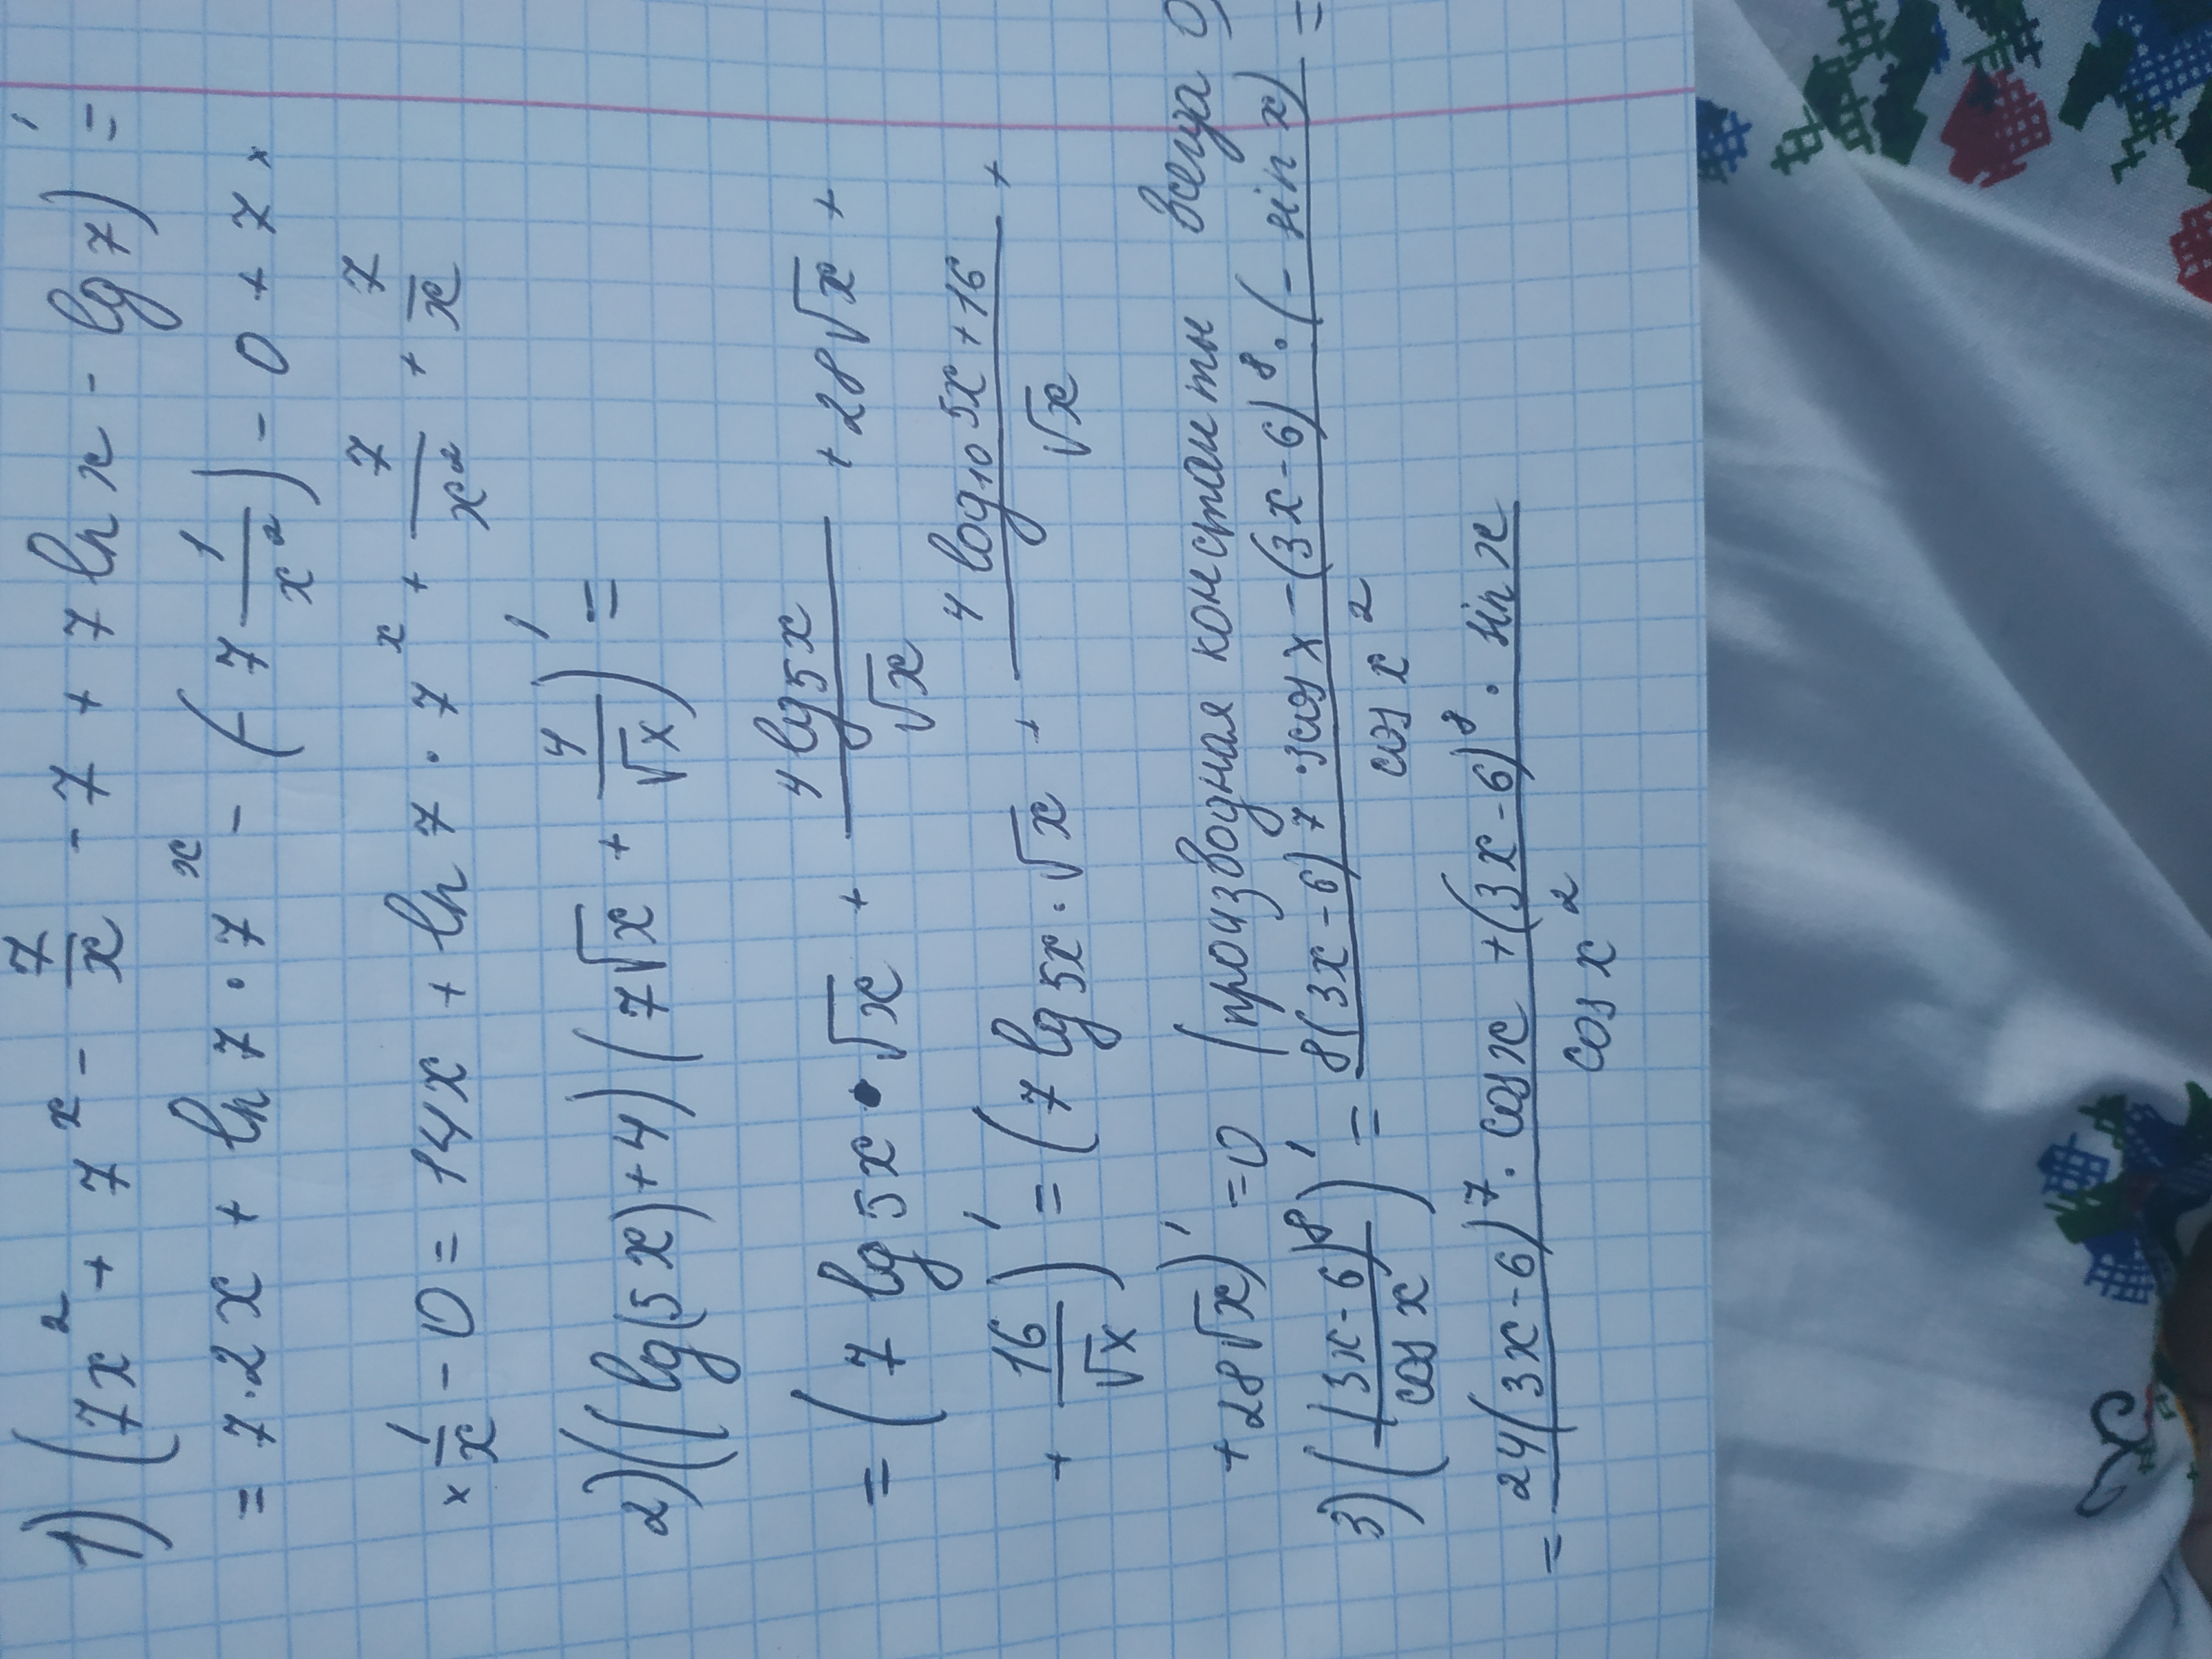 1) (7x² + 7ˣ - 7/x - 7 + 7 ln x - lg 7)' =
= 7·2x + ln 7 · 7ˣ - (-7 1/x²) - 0 + 7 ×
× 1/x - 0 = 14x + ln 7 · 7ˣ + 7/x² + 7/x
2) ((lg(5x)+4) (7√x + 4/√x)' =
= (7 lg 5x · √x + 4 lg 5x/√x + 28√x +
+ 16/√x)' = (7 lg 5x · √x + 4 log₁₀ 5x + 16/√x +
+ 28√x)' = 0 (производная константы всегда 0)
3) ((3x-6)⁸/cos x)' = 8(3x-6)⁷ · 3cos x - (3x-6)⁸ · (- sin x)/cos x² =
= 24(3x-6)⁷ · cos x + (3x-6)⁸ · sin x/cos x²